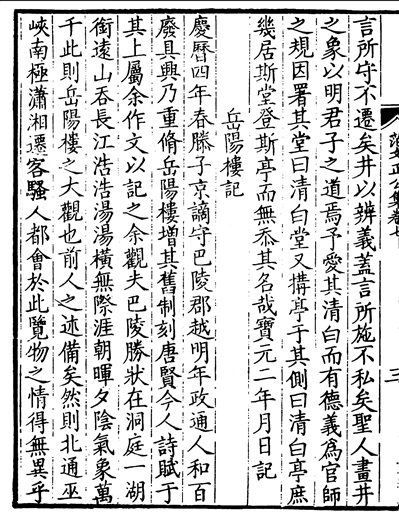 言所守不遷矣井以辨義蓋言所施不私矣聖人畫井
之象以明君子之道焉予愛其清白而有德義爲官師
之規因署其堂曰清白堂又搆亭于其側曰清白亭庶
幾居斯堂登斯亭而無忝其名哉寶元二年月日記
岳陽樓記
慶曆四年春滕子京謫守巴陵郡越明年政通人和百
廢具興乃重脩岳陽樓增其舊制刻唐賢今人詩賦于
其上屬余作文以記之余觀夫巴陵勝狀在洞庭一湖
銜遠山吞長江浩浩湯湯橫無際涯朝暉夕陰氣象萬
千此則岳陽樓之大觀也前人之述備矣然則北通巫
峽南極瀟湘遷客騷人都會於此覽物之情得無異乎